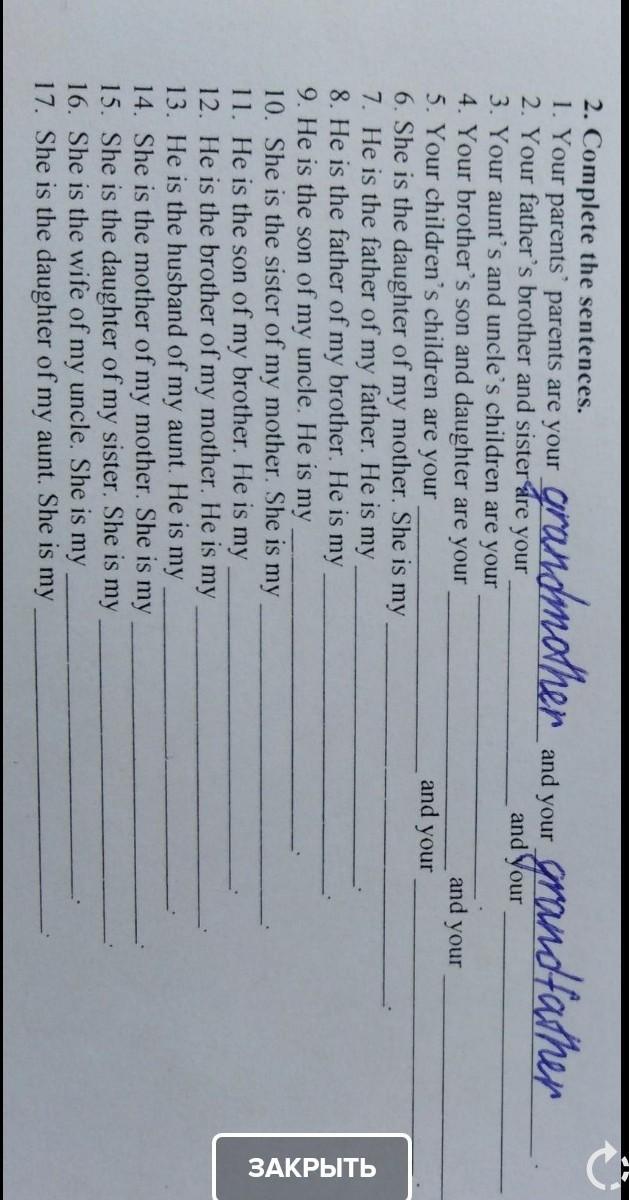 2. Complete the sentences.
1. Your parents' parents are your grandmother and your grandfather.
2. Your father's brother and sister are your ____ and your ____
3. Your aunt's and uncle's children are your ____.
4. Your brother's son and daughter are your ____ and your ____
5. Your children's children are your ____ and your ____.
6. She is the daughter of my mother. She is my ____.
7. He is the father of my father. He is my ____.
8. He is the father of my brother. He is my ____.
9. He is the son of my uncle. He is my ____.
10. She is the sister of my mother. She is my ____.
11. He is the son of my brother. He is my ____.
12. He is the brother of my mother. He is my ____.
13. He is the husband of my aunt. He is my ____.
14. She is the mother of my mother. She is my ____.
15. She is the daughter of my sister. She is my ____.
16. She is the wife of my uncle. She is my ____.
17. She is the daughter of my aunt. She is my ____.
ЗАКРЫТЬ